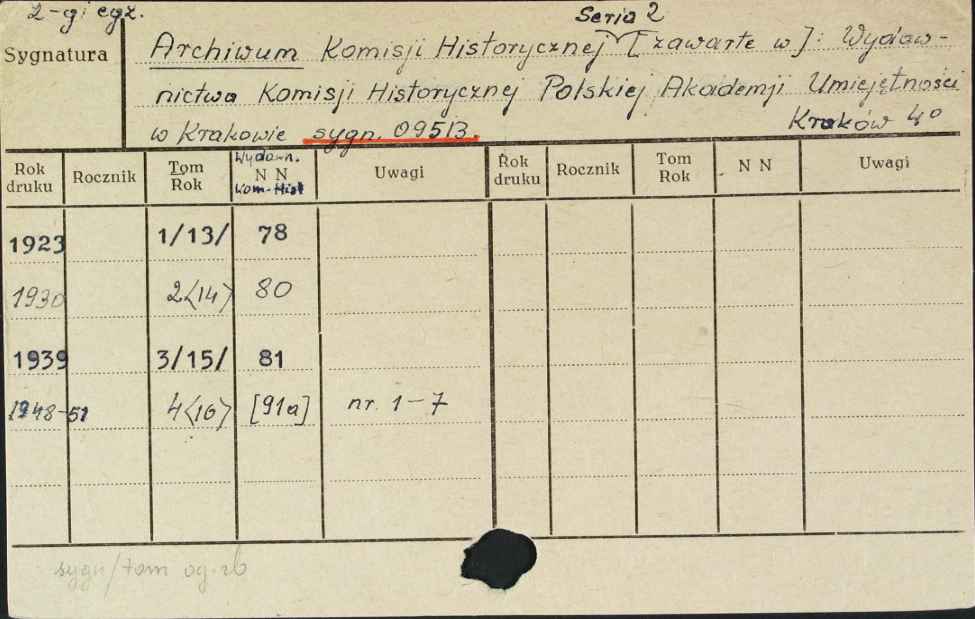 2-gi egz.
Seria 2
Sygnatura
Archiwum Komisji Historycznej [zawarte w]: Wydaw-
nictwa Komisji Historycznej Polskiej Akademji Umiejętności
w Krakowie sygn. 09513. Kraków 4°
Rok druku Rocznik Tom Rok Wydawn. N N Kom-Hist Uwagi Rok druku Rocznik Tom Rok N N Uwagi
1923 1/13/ 78
1930 2<14> 80
1939 3/15/ 81
1948-51 4<16> [91a] nr. 1-7
sygn/tom